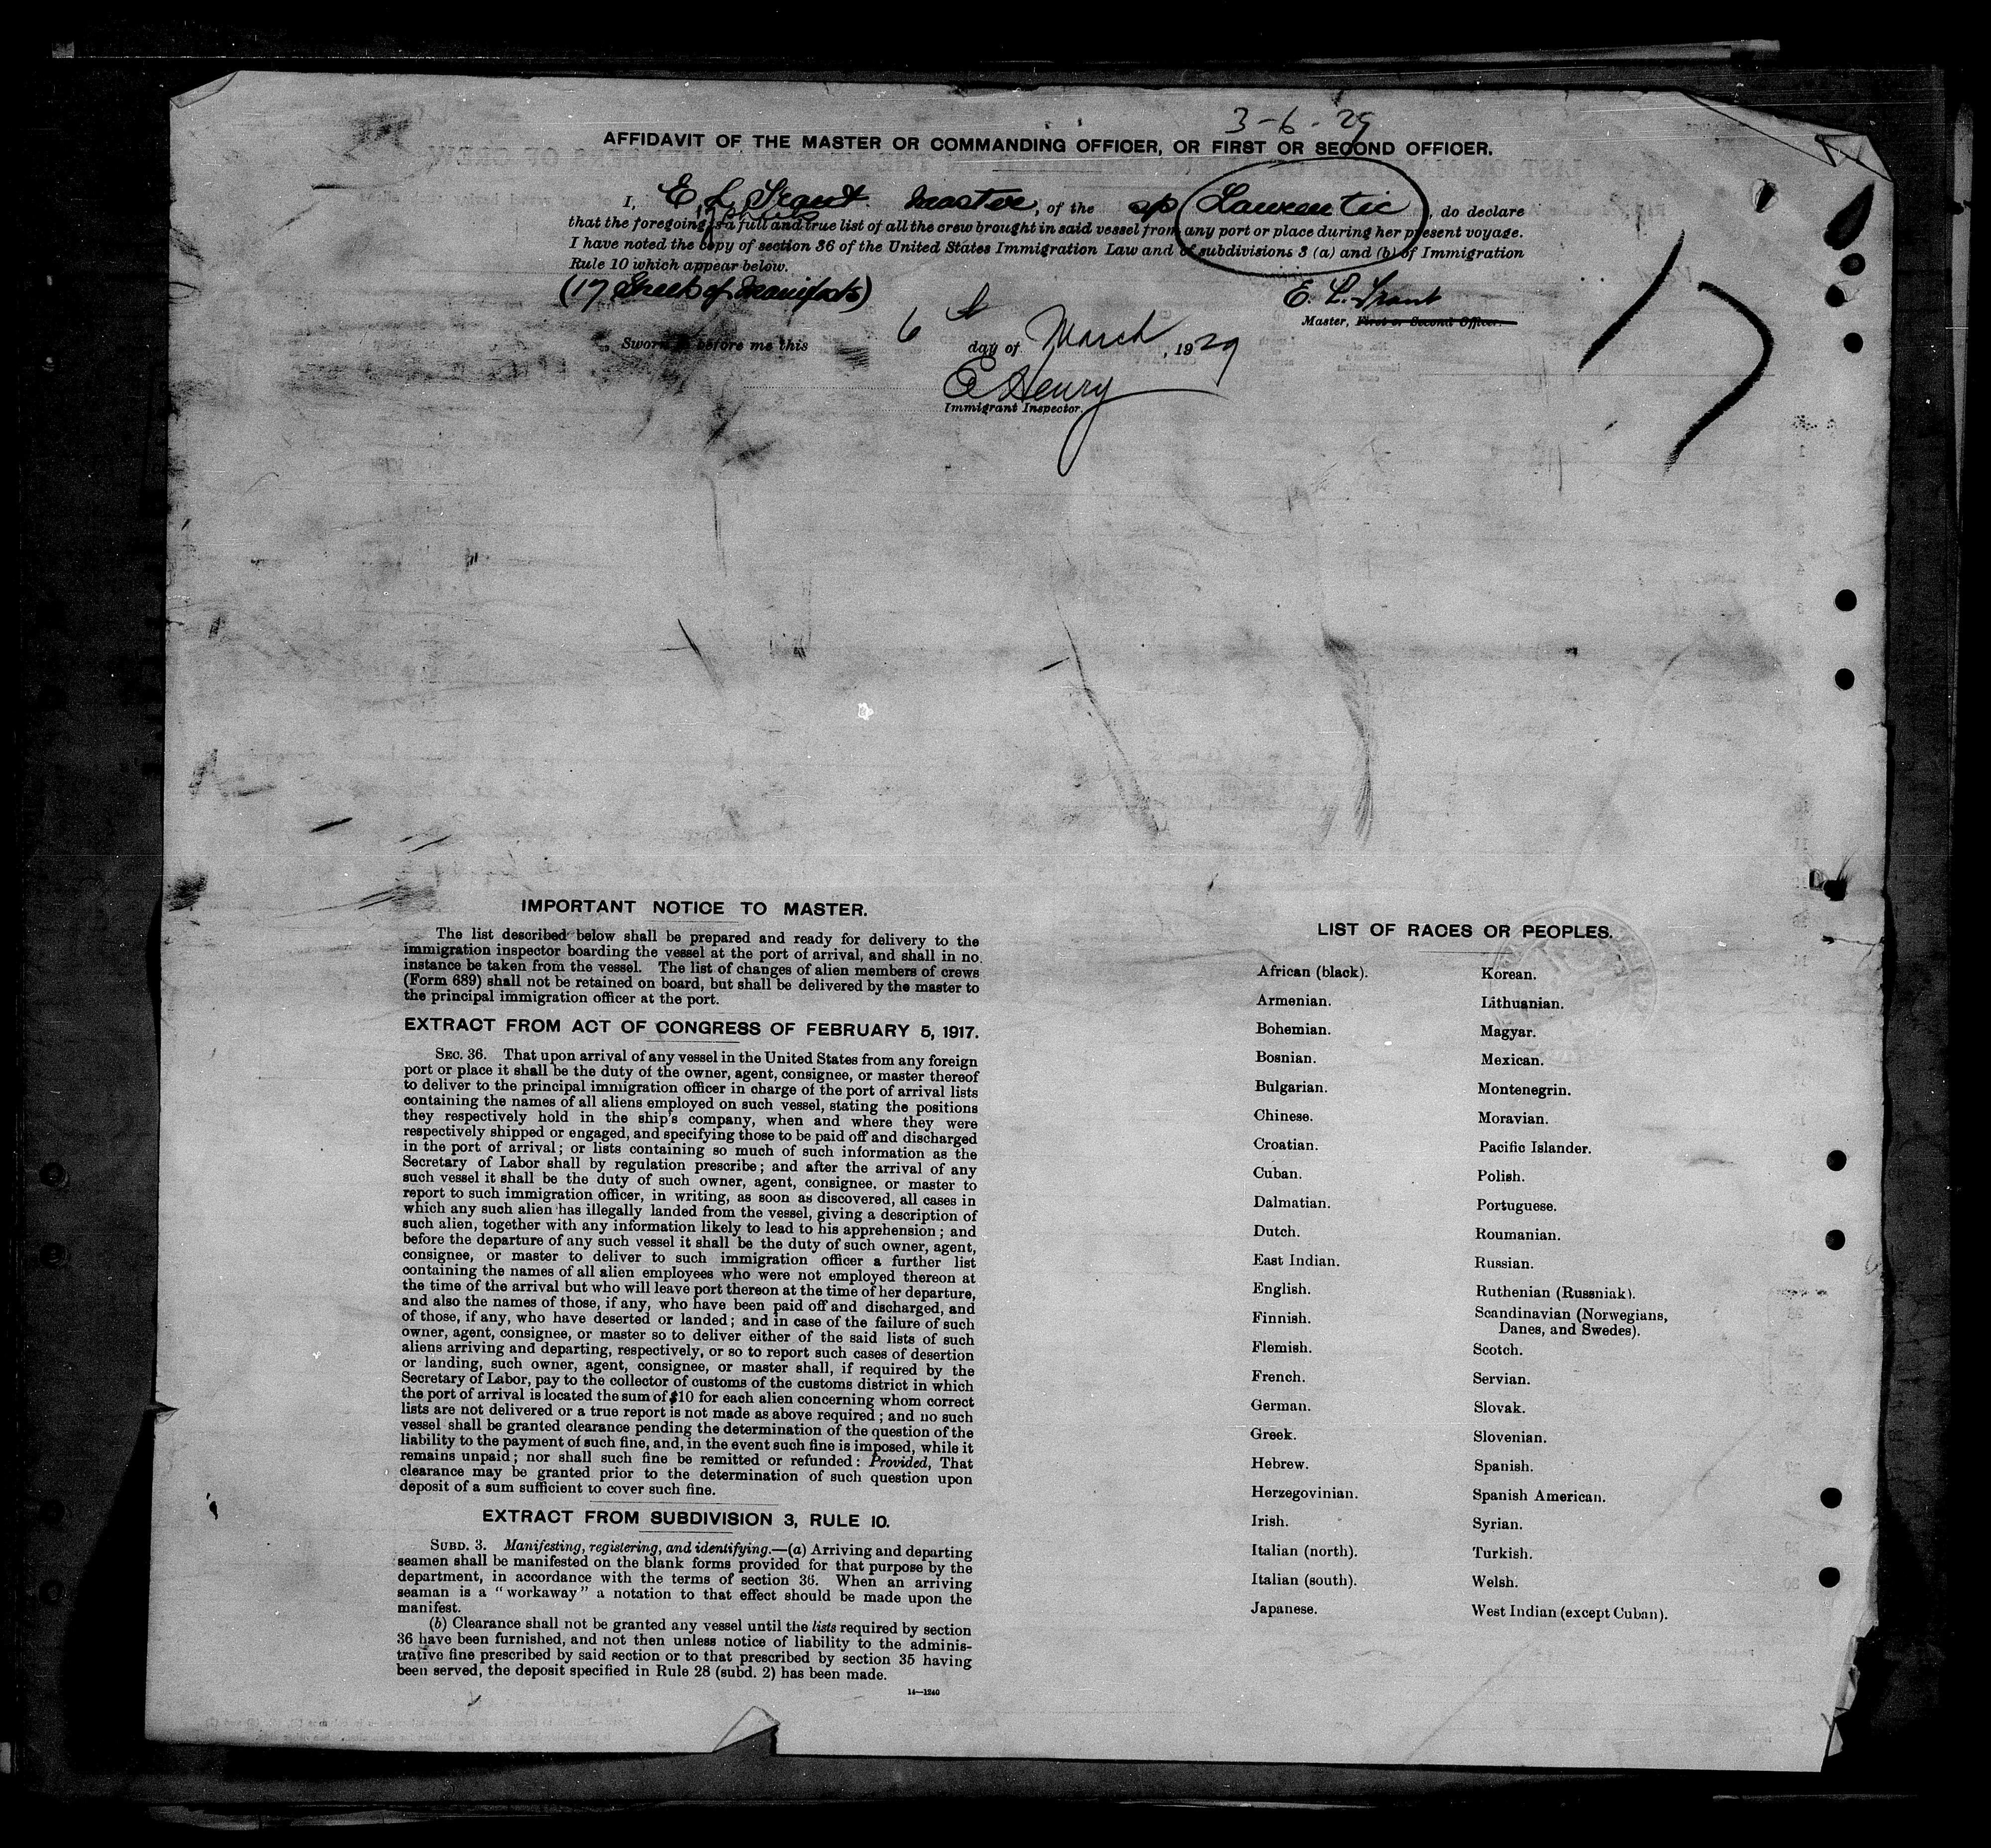 3-6-29
AFFIDAVIT OF THE MASTER OR COMMANDING OFFICER, OR FIRST OR SECOND OFFICER.
I, E L Trant master, of the Laurentic, do declare
17 sheets
that the foregoing is a full and true list of all the crew brought in said vessel from any port or place during her present voyage.
I have noted the copy of section 36 of the United States Immigration Law and of subdivisions 3 (a) and (b) of Immigration
Rule 10 which appear below.
(17 Sheets of Manifests)
E. L. Trant
Master, First or Second Officer.
Sworn to before me this 6th day of March, 1929
E Henry
Immigrant Inspector.
17
IMPORTANT NOTICE TO MASTER.
The list described below shall be prepared and ready for delivery to the
immigration inspector boarding the vessel at the port of arrival, and shall in no
instance be taken from the vessel. The list of changes of alien members of crews
(Form 689) shall not be retained on board, but shall be delivered by the master to
the principal immigration officer at the port.
EXTRACT FROM ACT OF CONGRESS OF FEBRUARY 5, 1917.
SEC. 36. That upon arrival of any vessel in the United States from any foreign
port or place it shall be the duty of the owner, agent, consignee, or master thereof
to deliver to the principal immigration officer in charge of the port of arrival lists
containing the names of all aliens employed on such vessel, stating the positions
they respectively hold in the ship's company, when and where they were
respectively shipped or engaged, and specifying those to be paid off and discharged
in the port of arrival; or lists containing so much of such information as the
Secretary of Labor shall by regulation prescribe; and after the arrival of any
such vessel it shall be the duty of such owner, agent, consignee, or master to
report to such immigration officer, in writing, as soon as discovered, all cases in
which any such alien has illegally landed from the vessel, giving a description of
such alien, together with any information likely to lead to his apprehension; and
before the departure of any such vessel it shall be the duty of such owner, agent,
consignee, or master to deliver to such immigration officer a further list
containing the names of all alien employees who were not employed thereon at
the time of the arrival but who will leave port thereon at the time of her departure,
and also the names of those, if any, who have been paid off and discharged, and
of those, if any, who have deserted or landed; and in case of the failure of such
owner, agent, consignee, or master so to deliver either of the said lists of such
aliens arriving and departing, respectively, or so to report such cases of desertion
or landing, such owner, agent, consignee, or master shall, if required by the
Secretary of Labor, pay to the collector of customs of the customs district in which
the port of arrival is located the sum of $10 for each alien concerning whom correct
lists are not delivered or a true report is not made as above required; and no such
vessel shall be granted clearance pending the determination of the question of the
liability to the payment of such fine, and, in the event such fine is imposed, while it
remains unpaid; nor shall such fine be remitted or refunded: Provided, That
clearance may be granted prior to the determination of such question upon
deposit of a sum sufficient to cover such fine.
EXTRACT FROM SUBDIVISION 3, RULE 10.
SUBD. 3. Manifesting, registering, and identifying.—(a) Arriving and departing
seamen shall be manifested on the blank forms provided for that purpose by the
department, in accordance with the terms of section 36. When an arriving
seaman is a "workaway" a notation to that effect should be made upon the
manifest.
(b) Clearance shall not be granted any vessel until the lists required by section
36 have been furnished, and not then unless notice of liability to the adminis-
trative fine prescribed by said section or to that prescribed by section 35 having
been served, the deposit specified in Rule 28 (subd. 2) has been made.
14—1240
LIST OF RACES OR PEOPLES.
African (black).
Armenian.
Bohemian.
Bosnian.
Bulgarian.
Chinese.
Croatian.
Cuban.
Dalmatian.
Dutch.
East Indian.
English.
Finnish.
Flemish.
French.
German.
Greek.
Hebrew.
Herzegovinian.
Irish.
Italian (north).
Italian (south).
Japanese.
Korean.
Lithuanian.
Magyar.
Mexican.
Montenegrin.
Moravian.
Pacific Islander.
Polish.
Portuguese.
Roumanian.
Russian.
Ruthenian (Russniak).
Scandinavian (Norwegians,
Danes, and Swedes).
Scotch.
Servian.
Slovak.
Slovenian.
Spanish.
Spanish American.
Syrian.
Turkish.
Welsh.
West Indian (except Cuban).